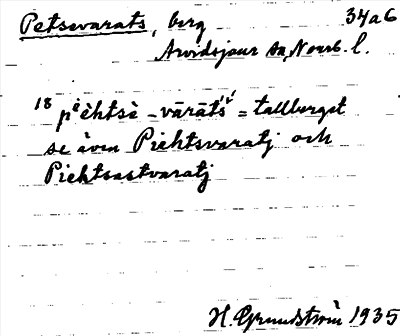 Petsevarats, berg 34a6
Arvidsjaur sn, Norrb. l.
18 pi̯èhtsè - vàràt́ś = tallberget
se även Piehtsvaratj och
Piehtsastvaratj
H. Grundström 1935